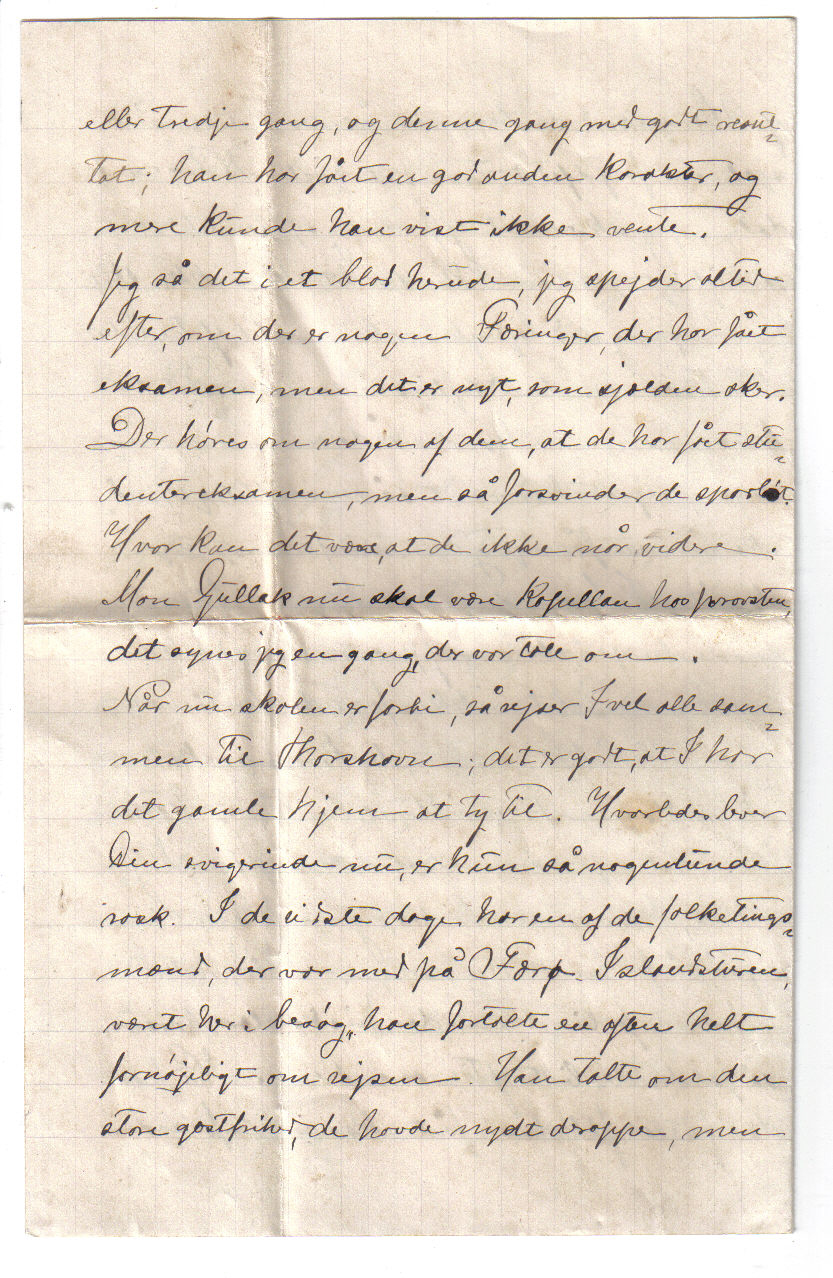 eller tredje gang, og denne gang med godt resul-
tat; han har fået en god anden Karakter, og
mere kunde han vist ikke vente.
Jeg så det i et blad herude, jeg spejder altid
efter, om der er nogen Færinger, der har fået
eksamen, men det er nyt, som sjælden sker.
Der høres om nogen af dem, at de har fået stu-
dentereksamen, men så forsvinder de sporløst.
Hvor kan det være, at de ikke når videre.
Mon Gullak nu skal være Kapellan hos provsten,
det synes jeg en gang, der var tale om.
Når nu skolen er forbi, så rejser I vel alle sam-
men til Thorshavn; det er godt, at I har
det gamle hjem at ty til. Hvorledes lever
Din svigerinde nu, er hun så nogenlunde
rask. I de sidste dage har en af de folketings-
mænd, der var med på Færø-Islandsturen,
været her i besøg, han fortalte en aften helt
fornøjeligt om rejsen. Han talte om den
store gæstfrihed, de havde nydt deroppe, men